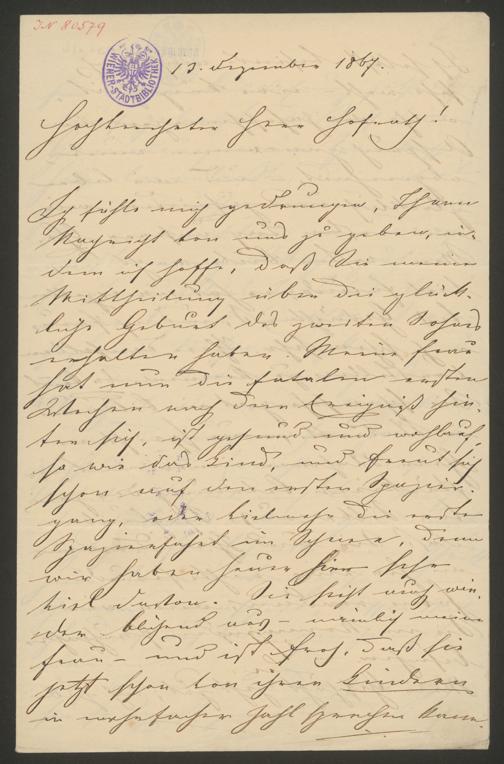 JN 80579
WIENER-STADTBIBLIOTHEK
13. Dezember 1867.
Hochverehrter Herr Hofrath!
Ich fühle mich gedrungen, Ihnen
Nachricht von uns zu geben, in-
dem ich hoffe, daß Sie meine
Mittheilung über die glück-
liche Geburt des zweiten Sohnes
erhalten haben. Meine Frau
hat nun die fatalen ersten
Wochen nach dem Ereigniß hin-
ter sich, ist gesund und wohlauf,
so wie das Kind, und freut sich
schon auf den ersten Spazier-
gang, oder vielmehr die erste
Spazierfahrt im Schnee, denn
wir haben heuer hier sehr
viel davon. Sie sieht auch wie-
der blühend aus – nämlich meine
Frau – und ist froh, daß sie
jetzt schon von ihren Kindern
in mehrfacher Zahl sprechen kann.